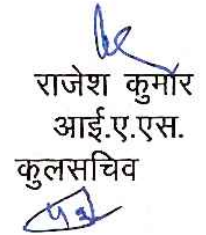 राजेश कुमार
आई.ए.एस.
कुलसचिव